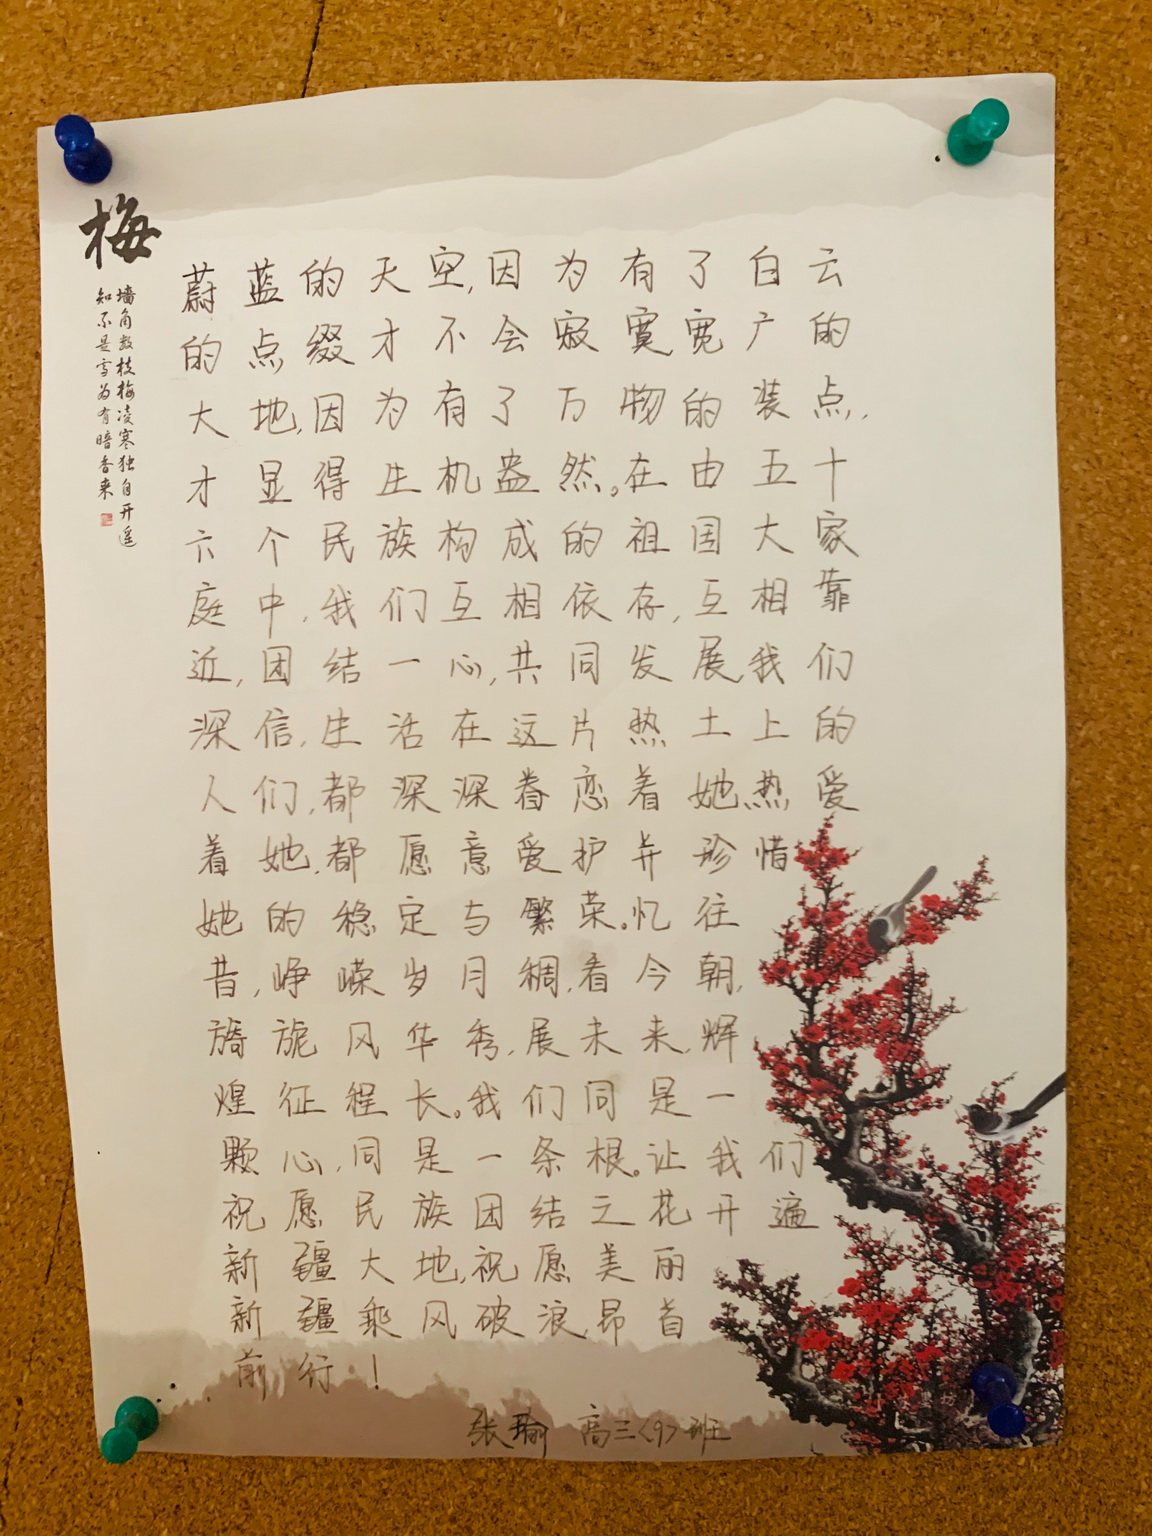 梅
墙角数枝梅凌寒独自开遥
知不是雪为有暗香来
蔚蓝的天空,因为有了白云
的点缀才不会寂寞宽广的
大地,因为有了万物的装点,
才显得生机盎然。在由五十
六个民族构成的祖国大家
庭中,我们互相依存,互相靠
近,团结一心,共同发展,我们
深信,生活在这片热土上的
人们,都深深眷恋着她,热爱
着她,都愿意爱护并珍惜
她的稳定与繁荣。忆往
昔,峥嵘岁月稠,看今朝,
旖旎风华秀,展未来,辉
煌征程长。我们同是一
颗心,同是一条根。让我们
祝愿民族团结之花开遍
新疆大地,祝愿美丽
新疆乘风破浪,昂首
前行!
张瑜 高三<9>班